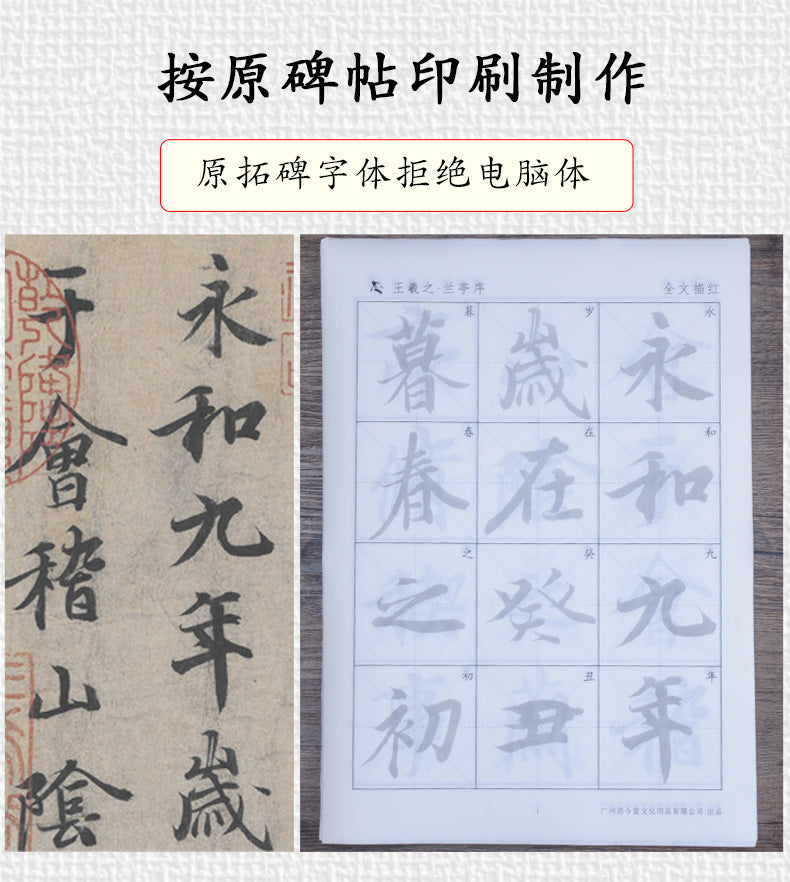 按原碑帖印刷制作
原拓碑字体拒绝电脑体
永和九年歳
于會稽山陰
王羲之·兰亭序
全文描红
永 和 九 年
永和九年
岁 在 癸 丑
歳在癸丑
暮 春 之 初
暮春之初
1
广州添今堂文化用品有限公司 出品